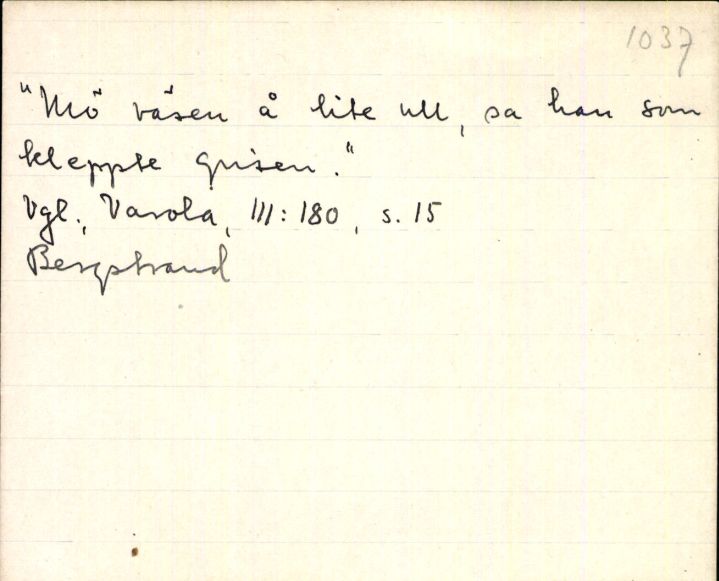 1037
"Mö väsen å lite ull, sa han som
kleppte grisen."
Vgl., Varola, III: 180, s. 15
Bergstrand